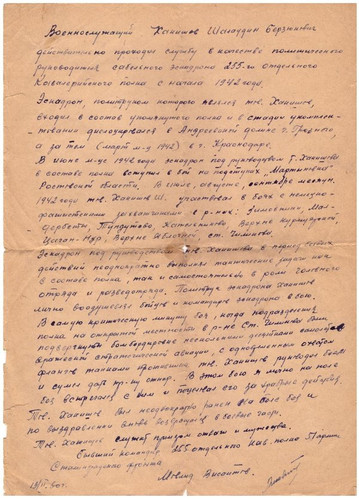 Военнослужащий Хакишев Шагаудин
действительно проходил службу в качестве политического
руководителя сабельного эскадрона 255-го отдельного
Кавалерийского полка с начала 1942 года.
Эскадрон, политруком которого являлся тов. Хакишев,
входил в состав упомянутого полка и в стадии укомплек-
тования дислоцировался в Андреевской долине г. Грозного
а затем (март м-ц 1942) в г. Краснодаре.
В июне м-це 1942 года эскадрон под руководством т. Хакишева
в составе полка вступил в бой на подступах "Мартыновка"
Ростовской области. В июле, августе, сентябре месяцах
1942 года тов. Хакишев Ш. участвовал в боях с немецко-
фашистскими захватчиками в р-нах: Зимовники, Мал-
дербеты, Тундутово, Котельниково,
Цаган-Нур, Верхне Яблочной, ст. Чилеково.
Эскадрон под руководством тов. Хакишева в период боевых
действий неоднократно выполнял тактические задачи как
в составе полка, так и самостоятельно в роли головного
отряда и разведотряда. Политрук эскадрона Хакишев
лично воодушевлял бойцов и командиров эскадрона в бою.
В самую критическую минуту боя, когда подразделения
полка, на открытой местности в р-не ст. Чилеково были
подвергнуты бомбардировке несколькими десятками самолетов
вражеской стратегической авиации, с одновременным охватом
флангов танками противника, тов. Хакишев руководил боем
и сумел дать отпор. В этом бою я лично на поле
боя встретился с ним и поцеловал его за храбрые действия.
Тов. Хакишев был неоднократно ранен на поле боя и
по выздоровлении вновь возвращался в боевые части.
Тов. Хакишев служит примером отваги и мужества.
Бывший командир 255 отдельного Кав. полка 51 армии
Сталинградского фронта
Мавлид Висаитов.